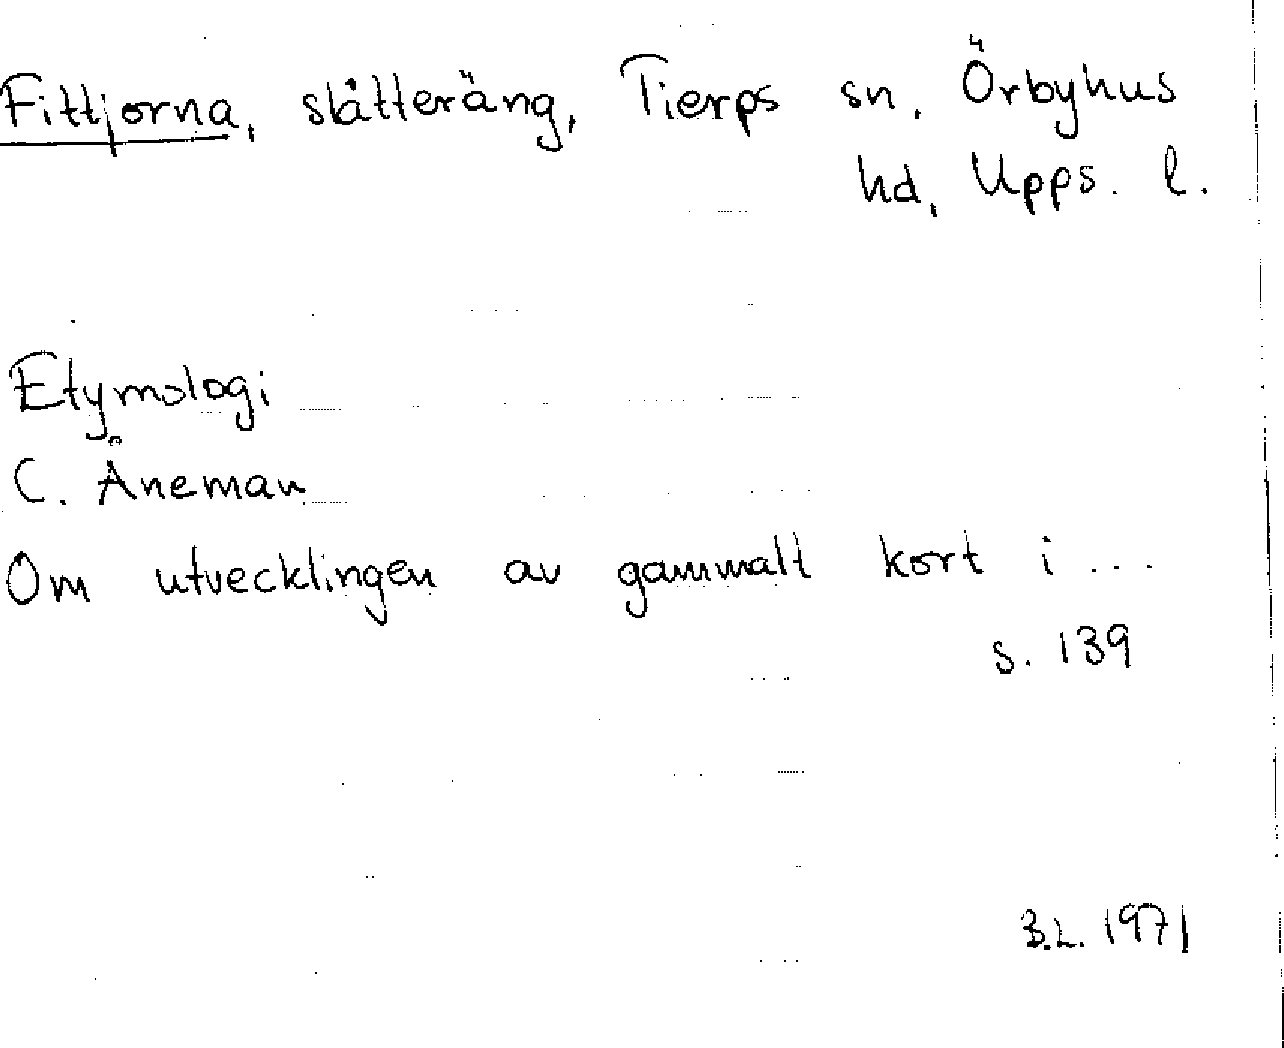 Fittjorna, slåtteräng, Tierps sn, Örbyhus
hd, Upps. l.
Etymologi
C. Åneman
Om utvecklingen av gammalt kort i ...
s. 139
B.L. 1971